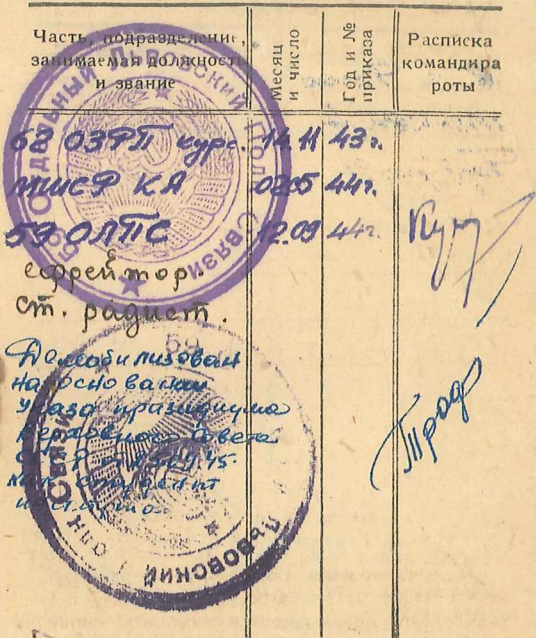 Часть, подразделение, занимаемая должность и звание
Месяц и число
Год и № приказа
Расписка командира роты
69 Отдельный Львовский Полк Связи
курс. 14.11 43г.
МШСФ КА 02.05 44г.
59 ОЛПС 12.09 44г.
ефрейтор.
ст. радист.
Демобилизован
на основании
Указа президиума
Верховного Совета
как студент
Львовский Полк Связи